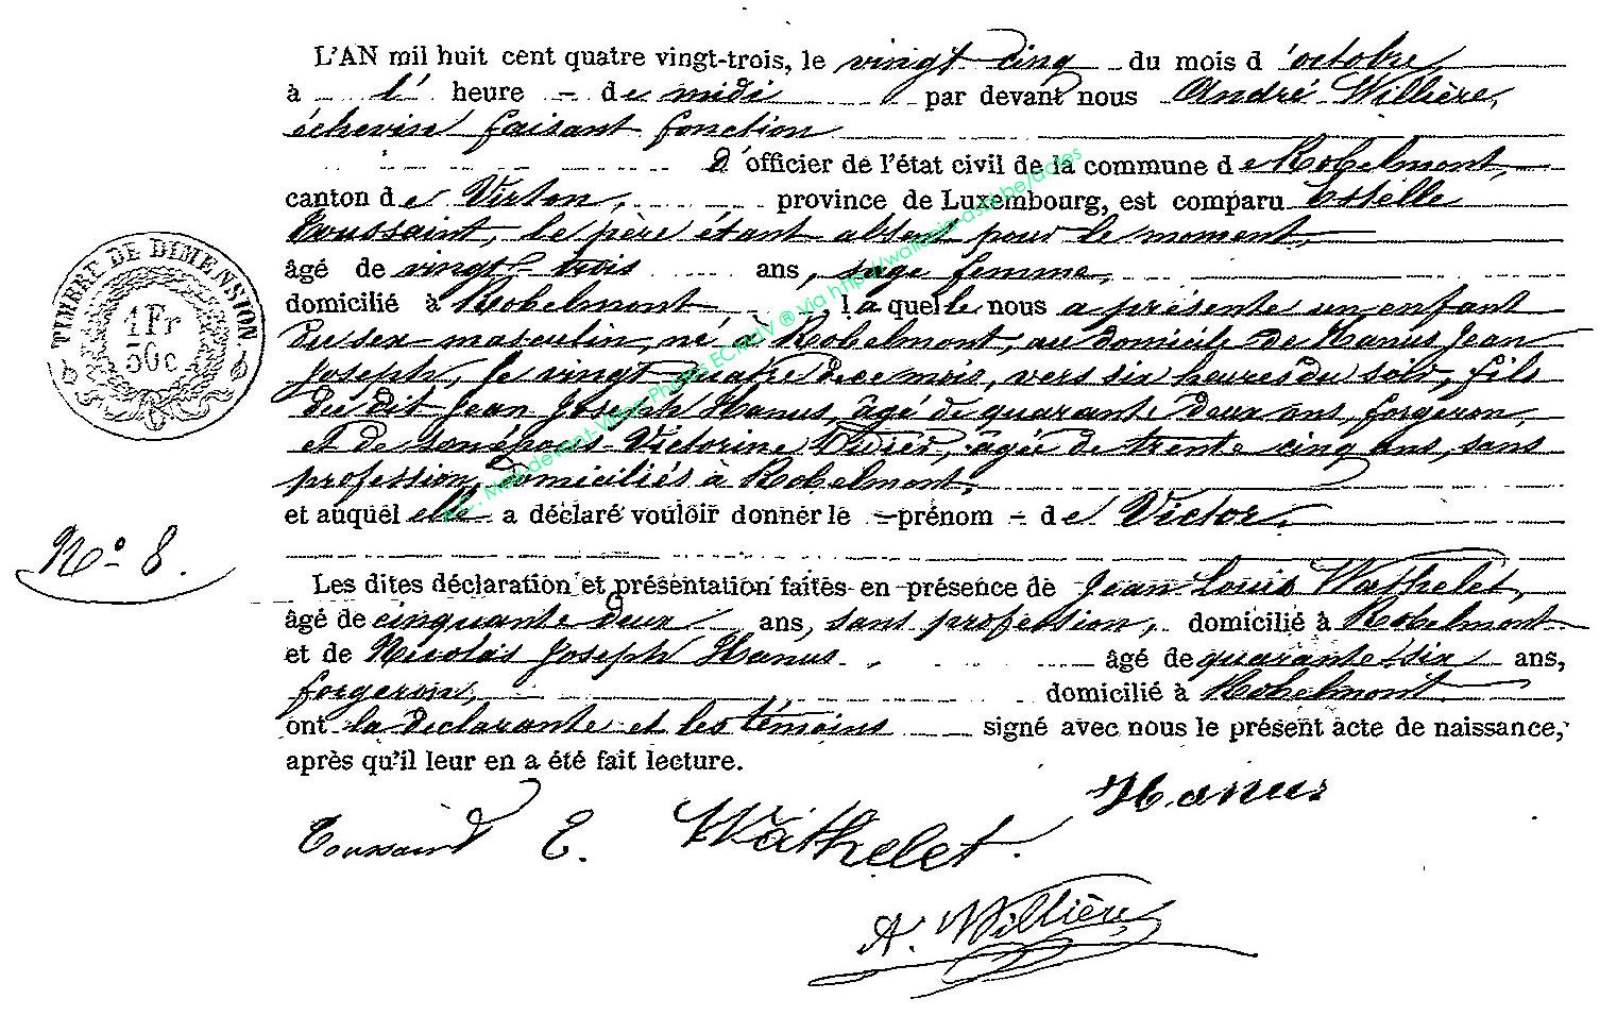 L'AN mil huit cent quatre vingt-trois, le vingt cinq du mois d'octobre
à l' heure - de midi par devant nous André Willière,
échevin faisant fonction
d'officier de l'état civil de la commune de Robelmont,
canton de Virton, province de Luxembourg, est comparu Estelle
Toussaint, le père étant absent pour le moment,
âgé de vingt-trois ans, sage femme,
domicilié à Robelmont, laquelle nous a présenté un enfant
du sexe masculin, né à Robelmont, au domicile de Hanus Jean
Joseph, le vingt quatre de ce mois, vers six heures du soir, fils
du dit Jean Joseph Hanus, âgé de quarante deux ans, forgeron,
et de son épouse Victorine Didier, âgée de trente cinq ans, sans
profession, domiciliés à Robelmont,
et auquel elle a déclaré vouloir donner le - prénom - de Victor.
N° 8.
Les dites déclaration et présentation faites en présence de Jean Louis Wathelet,
âgé de cinquante deux ans, sans profession, domicilié à Robelmont
et de Nicolas Joseph Hanus âgé de quarante six ans,
forgeron, domicilié à Robelmont
ont la déclarante et les témoins signé avec nous le présent acte de naissance,
après qu'il leur en a été fait lecture.
Hanus
Toussaint E. Wathelet.
A. Willière
TIMBRE DE DIMENSION
1 Fr
50c